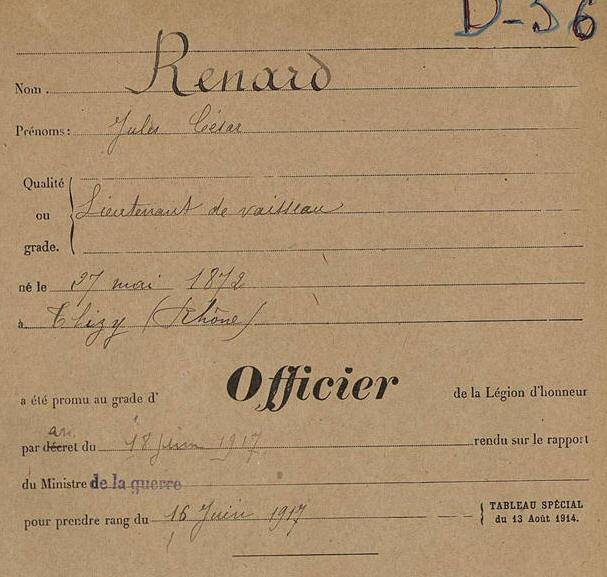 D-36
Nom. Renard
Prénoms: Jules César
Qualité
ou Lieutenant de vaisseau
grade.
né le 27 mai 1872
à Thizy (Rhône)
a été promu au grade d' Officier de la Légion d'honneur
arr
par décret du 18 juin 1917 rendu sur le rapport
du Ministre de la guerre
pour prendre rang du 16 Juin 1917
TABLEAU SPÉCIAL
du 13 Août 1914.